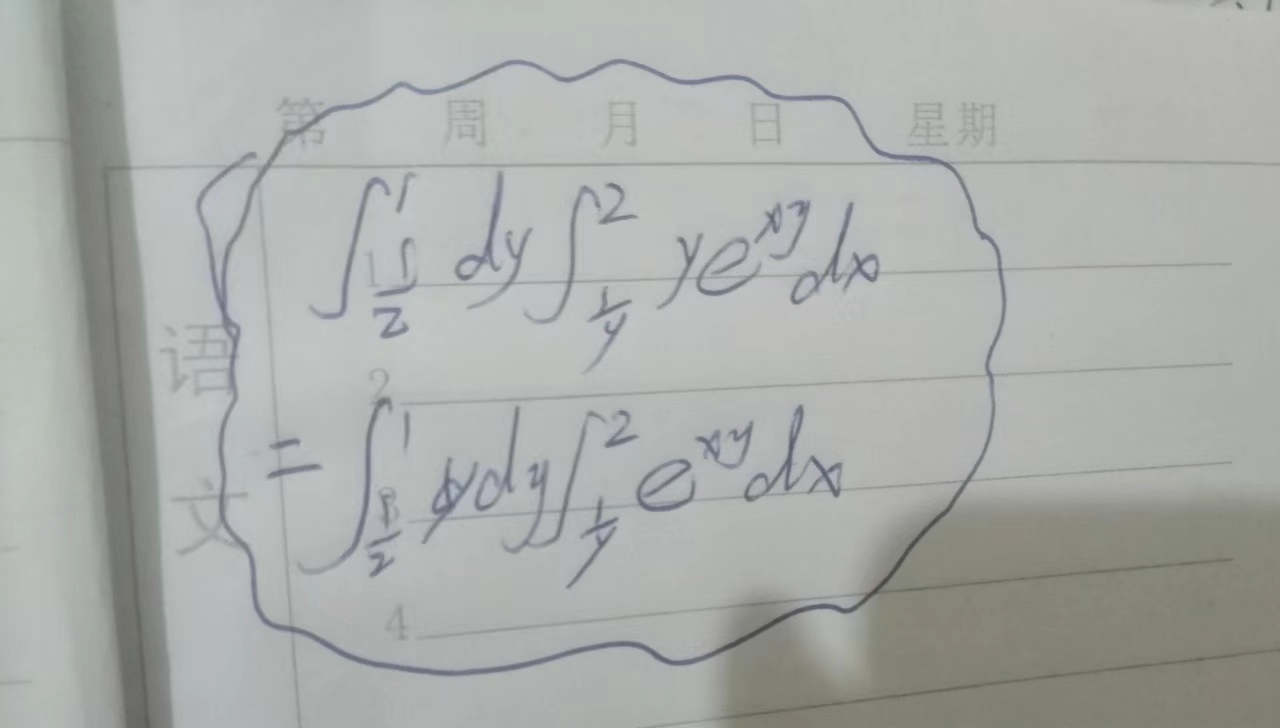 第 周 月 日 星期
∫_{1/2}^{1} dy ∫_{1/y}^{2} ye^{xy} dx
语
2
= ∫_{1/2}^{1} ydy ∫_{1/y}^{2} e^{xy} dx
文
4